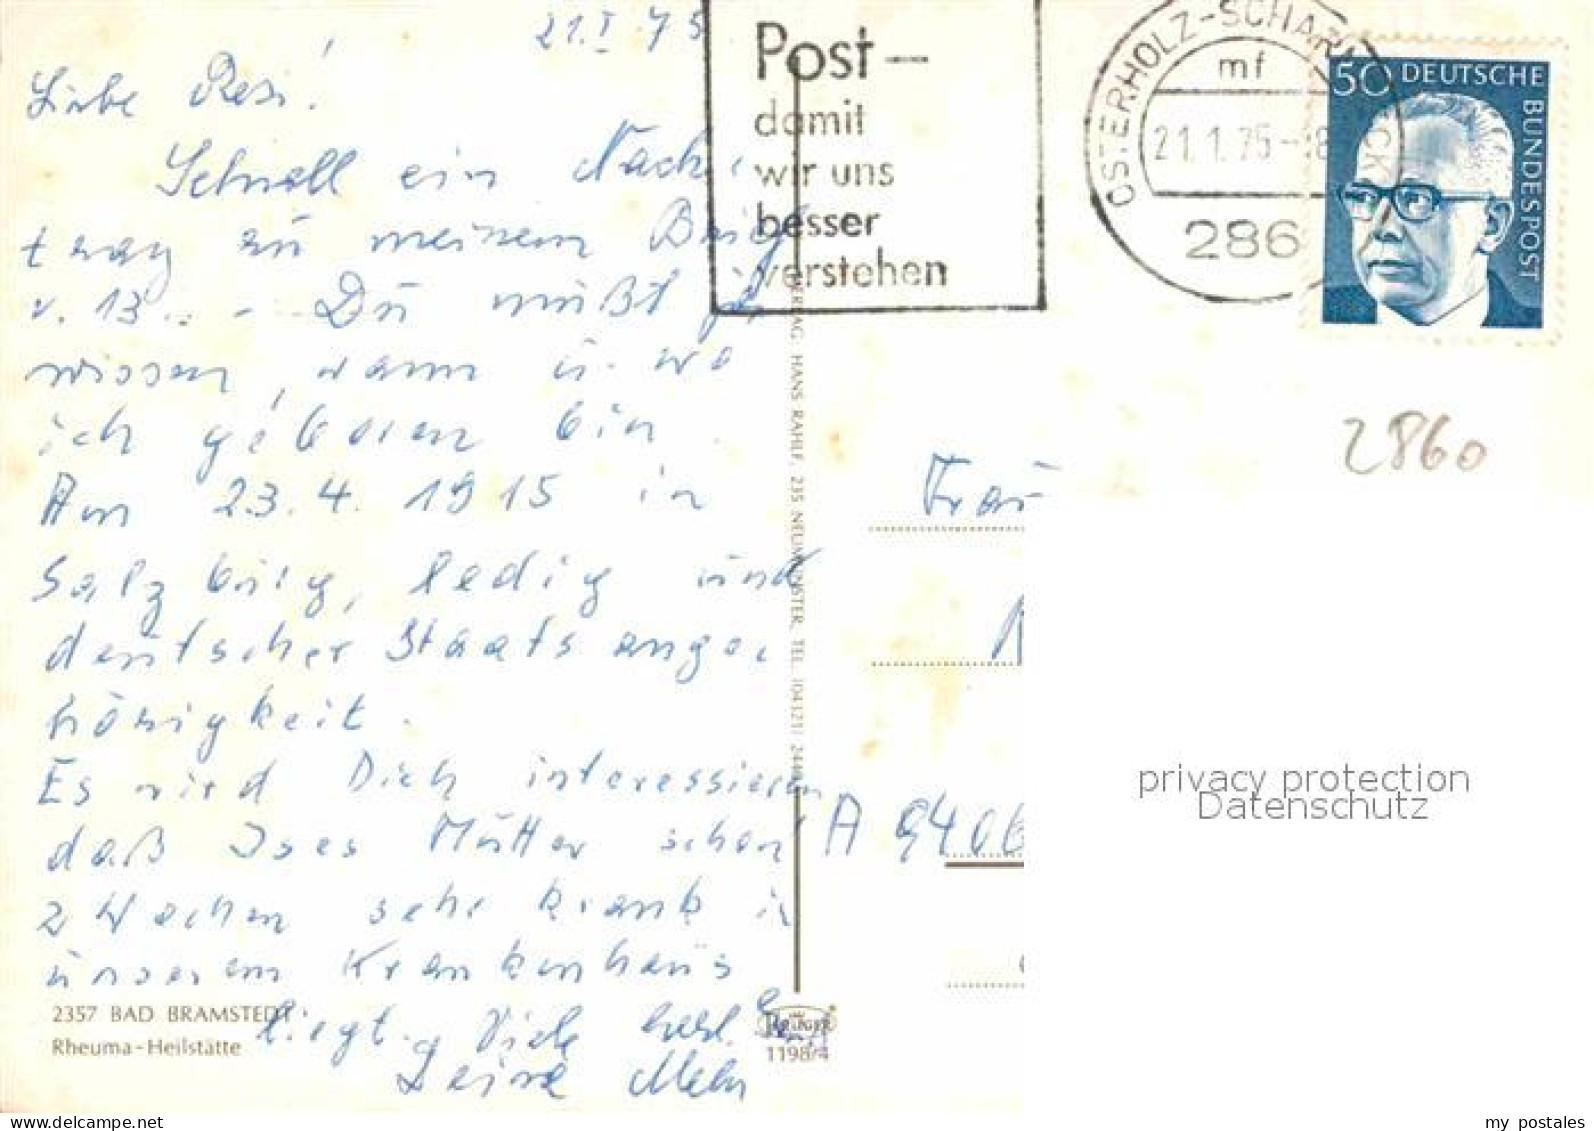 21.I.75
Liebe Resi!
Schnell ein Nach-
trag zu meinem Brief
v. 13. - Du mußt ja
wissen, wann u. wo
ich geboren bin.
Am 23.4.1915 in
Salzburg, ledig und
deutscher Staatsange-
hörigkeit.
Es wird Dich interessieren
daß Ises Mutter schon
2 Wochen sehr krank in
unserem Krankenhaus
liegt. Viele herzl.
Deine
2357 BAD BRAMSTEDT
Rheuma-Heilstätte
Post-
damit
wir uns
besser
verstehen
VERLAG HANS RAHLF, 235 NEUMÜNSTER, TEL. (04321)
KRÜGER
1198/4
OSTERHOLZ-SCHARMBECK
mf
21.1.75-18
286
50 DEUTSCHE
BUNDESPOST
2860
Frau
A 9406
privacy protection
Datenschutz
www.delcampe.net
my_postales